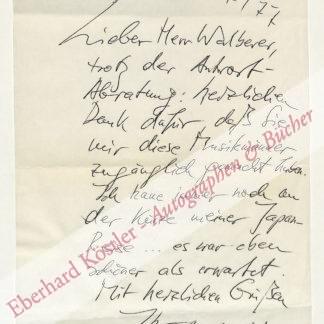 77
Lieber Herr Walberer,
trotz der Antwort-
Abratung: herzlichen
Dank dafür, daß Sie
mir diese Musikmünster
zugänglich gemacht haben.
Ich kaue immer noch an
der Küste meiner Japan-
... es war eben
schöner als erwartet.
Mit herzlichen Grüßen
Ihr
Eberhard Köstler - Autographen & Bücher